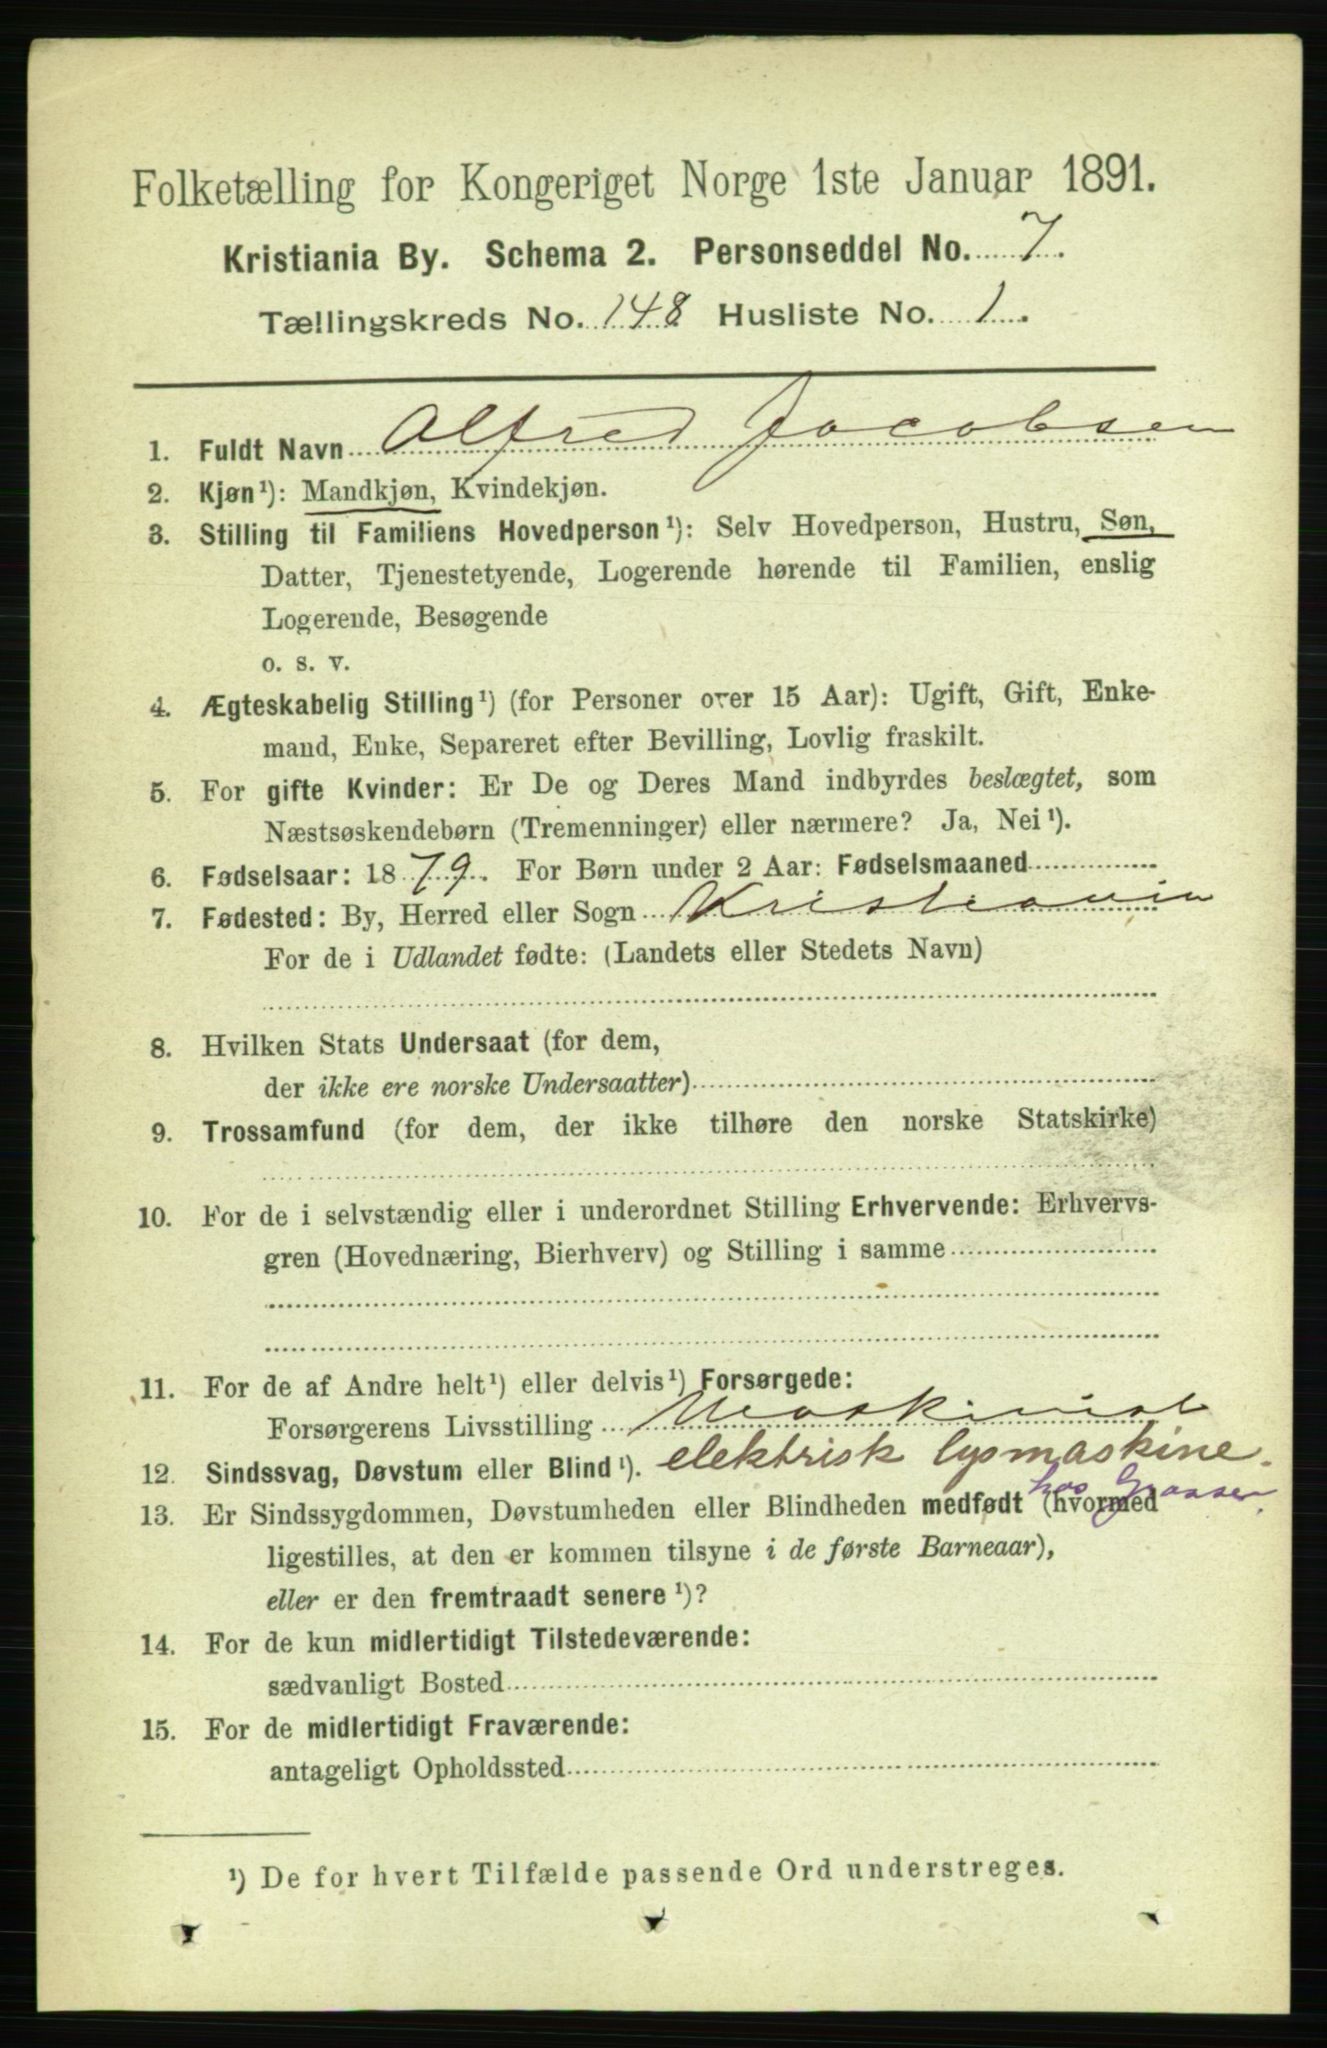 Folketælling for Kongeriget Norge 1ste Januar 1891.
Kristiania By. Schema 2. Personseddel No. 7.
Tællingskreds No. 148 Husliste No. 1.
1. Fuldt Navn Alfred Jacobsen
2. Kjøn¹): Mandkjøn, Kvindekjøn.
3. Stilling til Familiens Hovedperson¹): Selv Hovedperson, Hustru, Søn,
Datter, Tjenestetyende, Logerende hørende til Familien, enslig
Logerende, Besøgende
o. s. v.
4. Ægteskabelig Stilling¹) (for Personer over 15 Aar): Ugift, Gift, Enke-
mand, Enke, Separeret efter Bevilling, Lovlig fraskilt.
5. For gifte Kvinder: Er De og Deres Mand indbyrdes beslægtet, som
Næstsøskendebørn (Tremenninger) eller nærmere? Ja, Nei¹).
6. Fødselsaar: 1879. For Børn under 2 Aar: Fødselsmaaned
7. Fødested: By, Herred eller Sogn Kristiania
For de i Udlandet fødte: (Landets eller Stedets Navn)
8. Hvilken Stats Undersaat (for dem,
der ikke ere norske Undersaatter)
9. Trossamfund (for dem, der ikke tilhøre den norske Statskirke)
10. For de i selvstændig eller i underordnet Stilling Erhvervende: Erhvervs-
gren (Hovednæring, Bierhverv) og Stilling i samme
11. For de af Andre helt¹) eller delvis¹) Forsørgede:
Forsørgerens Livsstilling Maskinist
elektrisk lysmaskine.
12. Sindssvag, Døvstum eller Blind¹).
hos
13. Er Sindssygdommen, Døvstumheden eller Blindheden medfødt (hvormed
ligestilles, at den er kommen tilsyne i de første Barneaar),
eller er den fremtraadt senere¹)?
14. For de kun midlertidigt Tilstedeværende:
sædvanligt Bosted
15. For de midlertidigt Fraværende:
antageligt Opholdssted
¹) De for hvert Tilfælde passende Ord understreges.